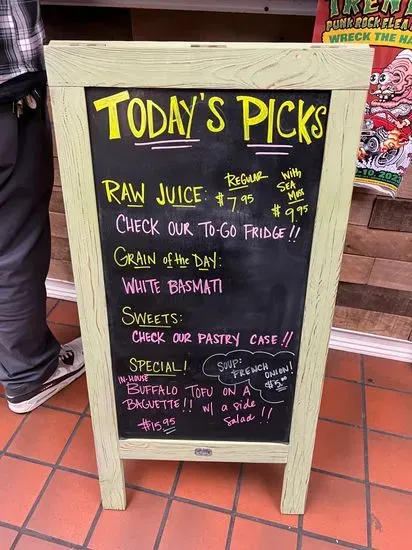 TODAY'S PICKS
RAW JUICE: REGULAR $7.95 WITH SEA MOSS $9.95
CHECK OUR TO-GO FRIDGE!!
GRAIN of the DAY:
WHITE BASMATI
SWEETS:
CHECK OUR PASTRY CASE!!
SPECIAL!
SOUP: FRENCH ONION! $5.00
IN-HOUSE
BUFFALO TOFU ON A
BAGUETTE!! w/ a side salad!!
$15.95
PUNK ROCK FLEA
WRECK THE HA